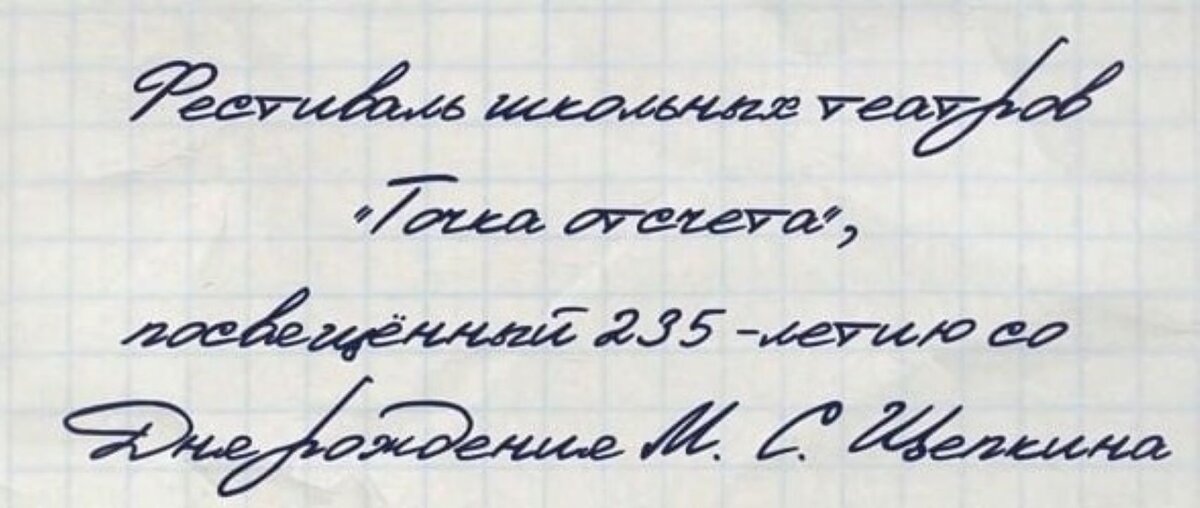 Фестиваль школьных театров
"Точка отсчета",
посвещённый 235-летию со
Дня рождения М. С. Щепкина